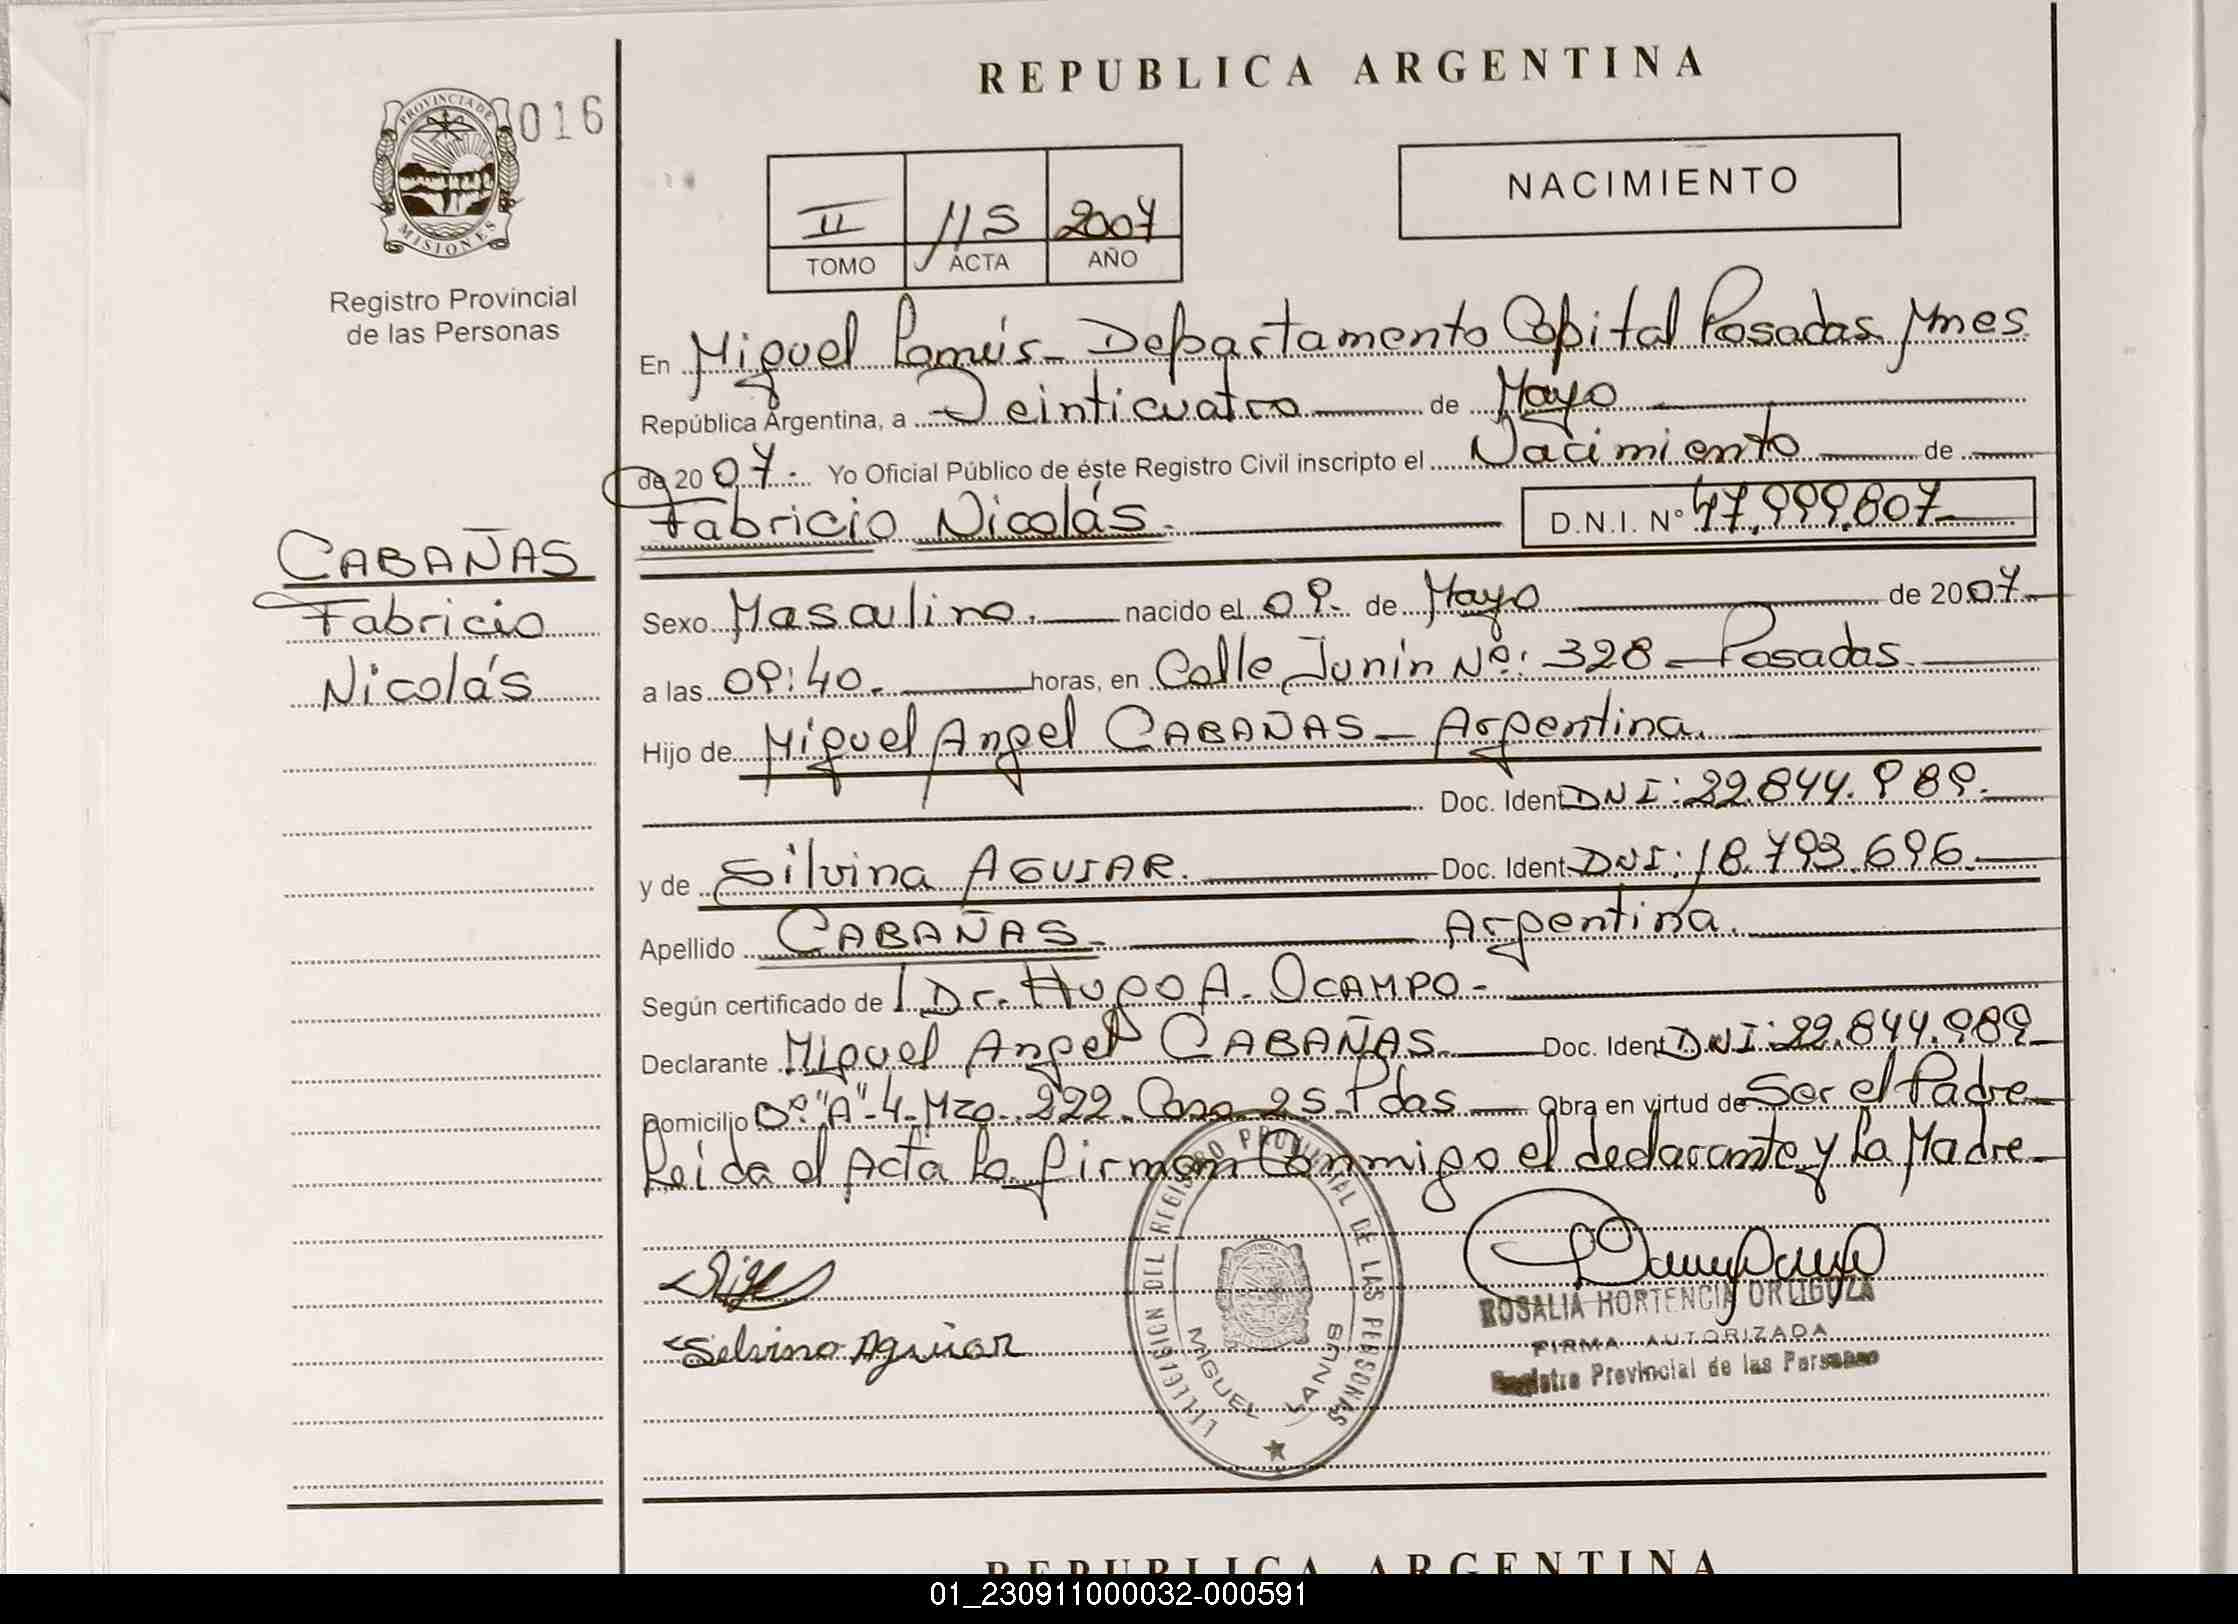 REPUBLICA ARGENTINA
PROVINCIA DE
MISIONES
016
Registro Provincial
de las Personas
II 115 2007
TOMO ACTA AÑO
NACIMIENTO
En Miguel Lanús - Departamento Capital Posadas Mnes.
República Argentina, a Veinticuatro de Mayo
de 2007. Yo Oficial Público de éste Registro Civil inscripto el Nacimiento de
Fabricio Nicolás. D.N.I. N° 47.999.807
CABAÑAS
Fabricio
Nicolás
Sexo Masculino. nacido el 09. de Mayo de 2007
a las 09:40. horas, en Calle Junín Nº: 328 - Posadas.
Hijo de Miguel Angel CABAÑAS - Argentina.
Doc. Ident DNI: 22.844.989.
y de Silvina AGUIAR. Doc. Ident DNI: 18.793.696.
Apellido CABAÑAS. Argentina.
Según certificado de Dr. Hugo A. OCAMPO -
Declarante Miguel Angel CABAÑAS. Doc. Ident DNI: 22.844.989
Domicilio Bº "A"-4-Mza. 222. Casa 25. Pdas Obra en virtud de Ser el Padre
Leida el Acta la firman Conmigo el declarante y la Madre
Silvina Aguiar
DELEGACION DEL REGISTRO PROVINCIAL DE LAS PERSONAS
PROVINCIA DE
MIGUEL LANUS
ROSALIA HORTENCIA ORTIGOZA
FIRMA AUTORIZADA
Registro Provincial de las Personas
REPUBLICA ARGENTINA
01_230911000032-000591